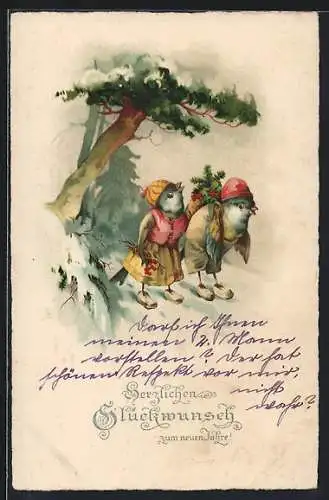 Darf ich Ihnen
meinen 2. Mann
vorstellen? Der hat
schönen Respekt vor mir,
nicht
wahr?
Herzlichen
Glückwunsch
zum neuen Jahre!